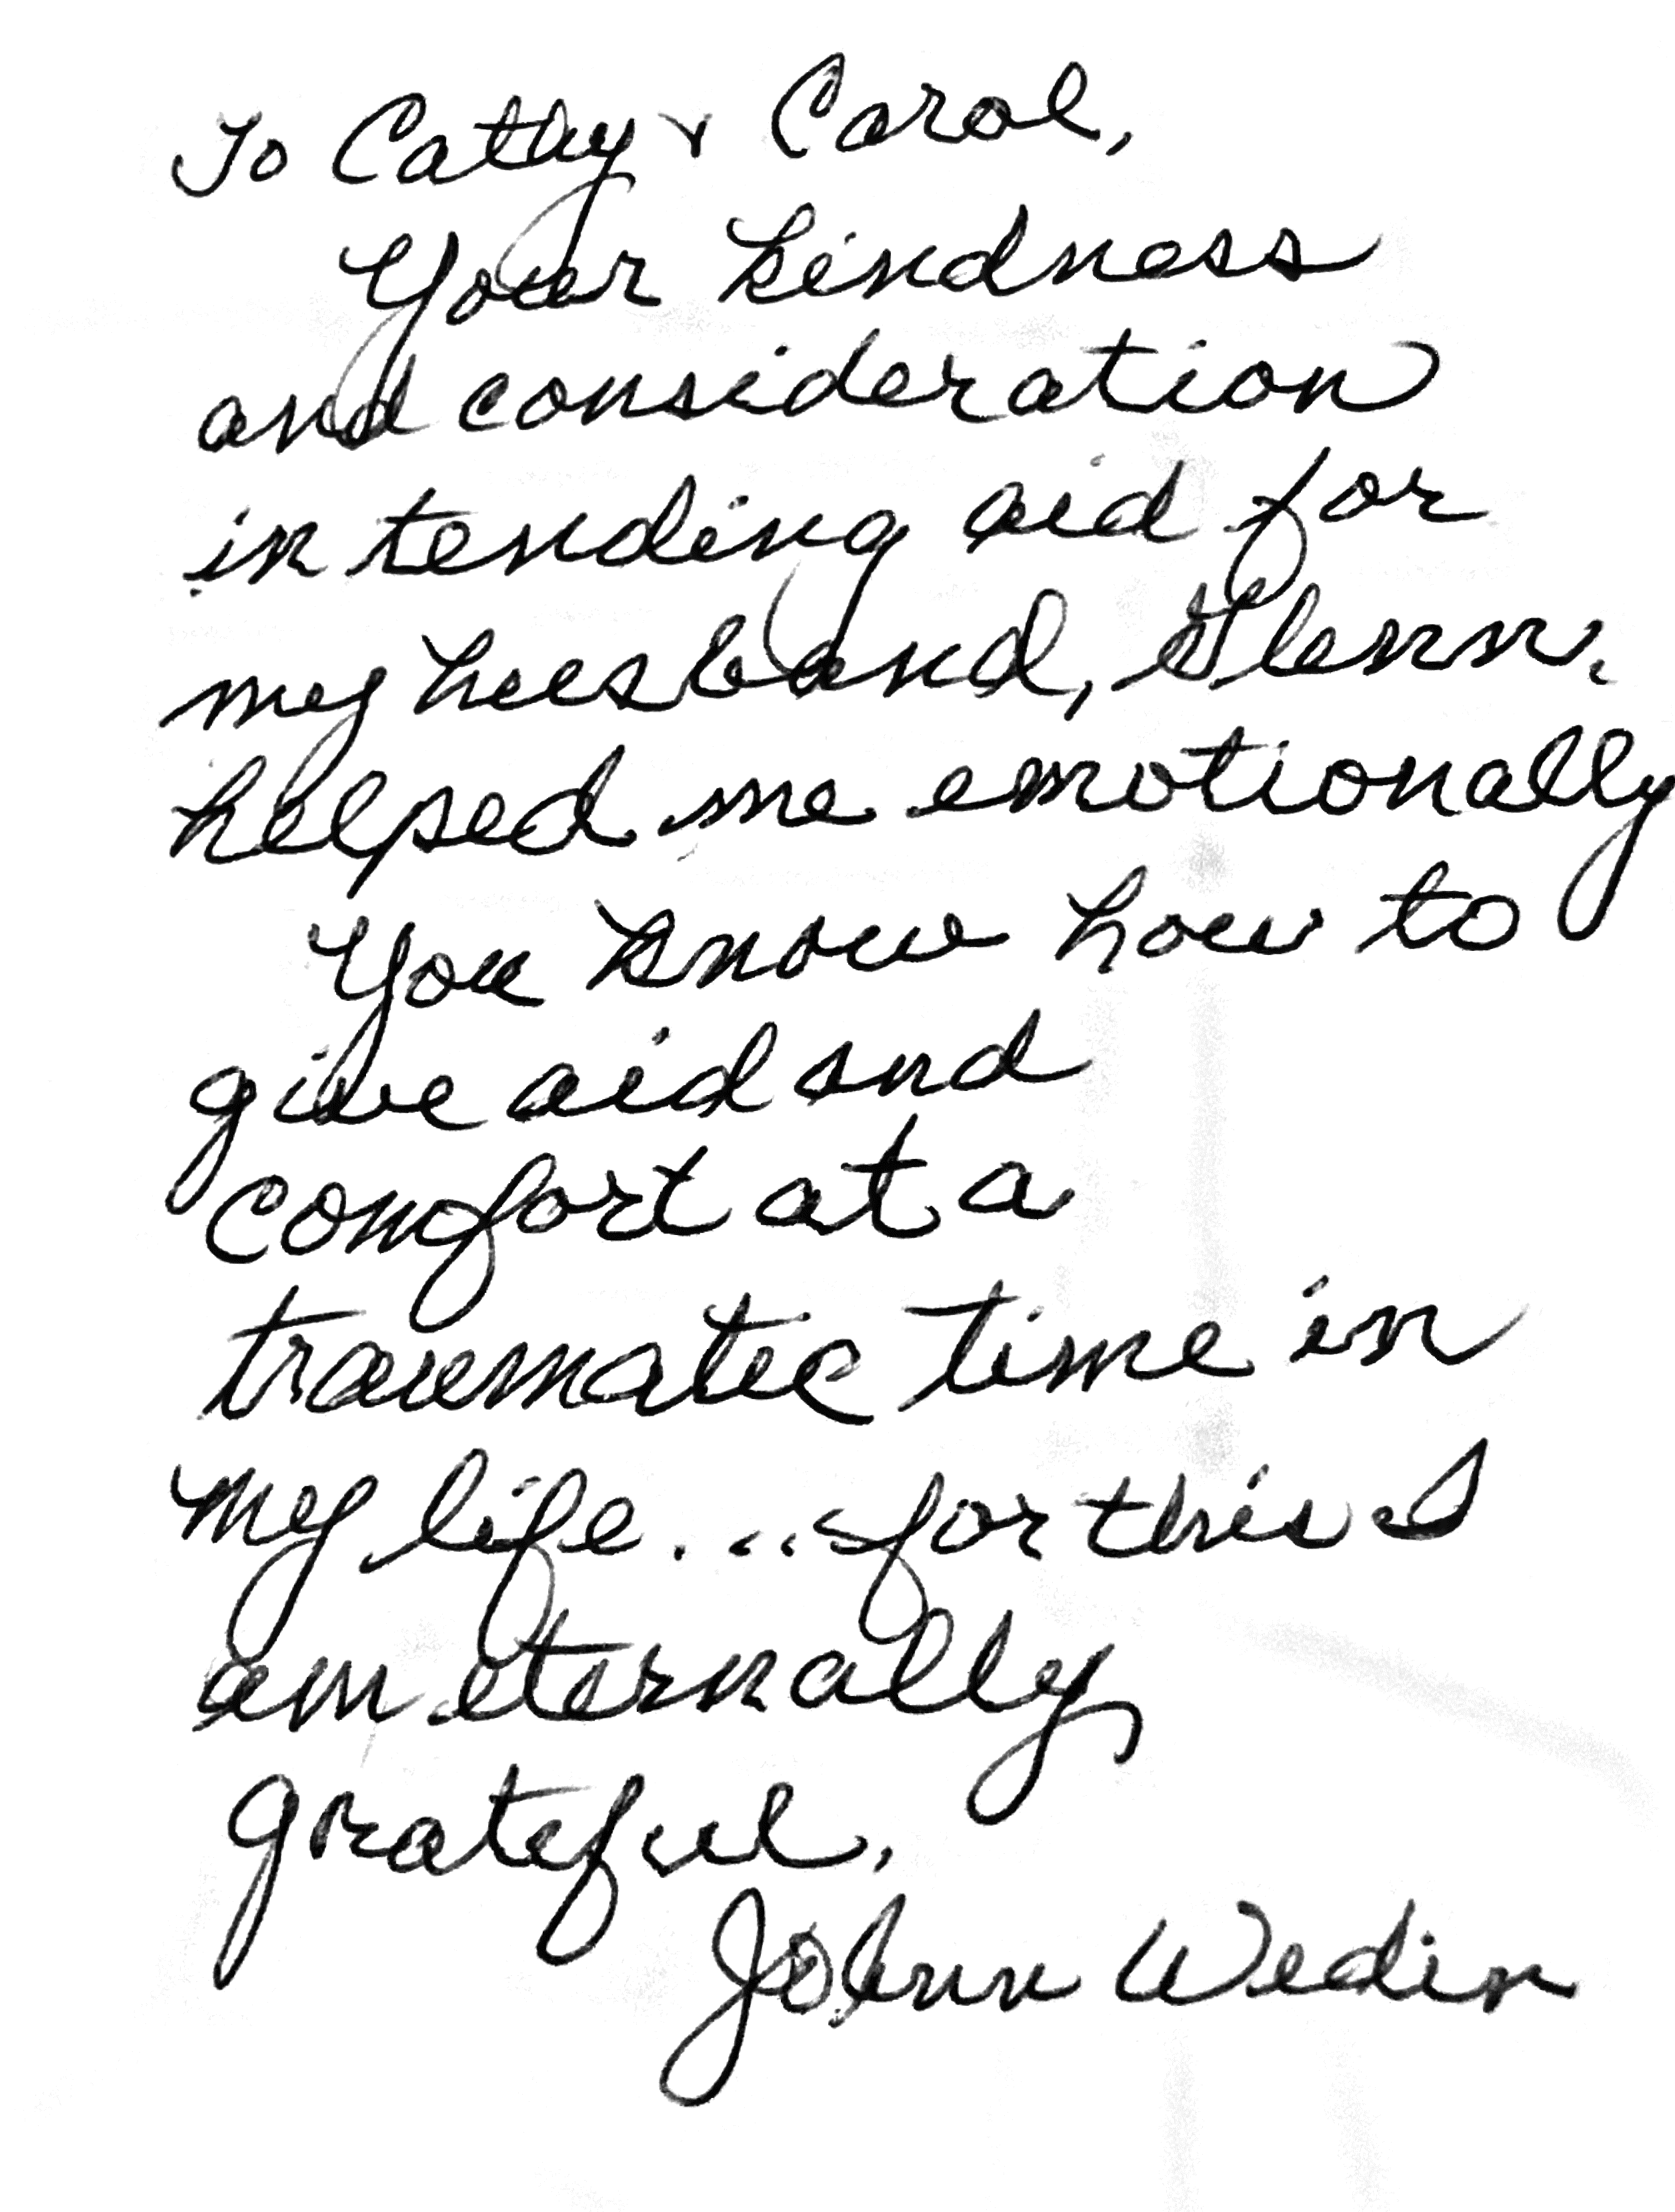 To Cathy & Carol,
Your kindness
and consideration
in tending aid for
my husband, Glenn,
helped me emotionally
You know how to
give aid and
comfort at a
traumatic time in
my life... for this I
am eternally
grateful,
JoAnn Wedin